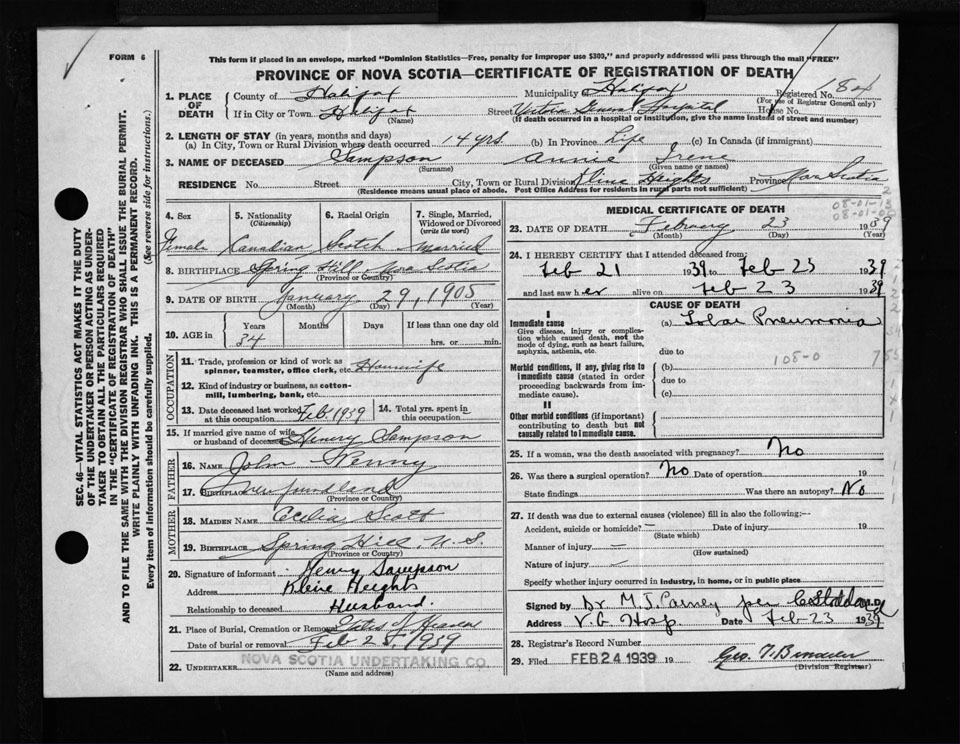 FORM 6
This form if placed in an envelope, marked "Dominion Statistics—Free, penalty for improper use $300," and properly addressed will pass through the mail "FREE"
PROVINCE OF NOVA SCOTIA—CERTIFICATE OF REGISTRATION OF DEATH
1. PLACE OF DEATH
County of Halifax Municipality of Halifax Registered No. 184
(For use of Registrar General only)
If in City or Town Halifax Street Victoria General Hospital House No.
(Name) (If death occurred in a hospital or institution, give the name instead of street and number)
2. LENGTH OF STAY (in years, months and days)
(a) In City, Town or Rural Division where death occurred 14 yrs. (b) In Province Life (c) In Canada (if immigrant)
3. NAME OF DECEASED Sampson Annie Irene
(Surname) (Given name or names)
RESIDENCE No. Street City, Town or Rural Division Kline Heights Province Nova Scotia
(Residence means usual place of abode. Post Office Address for residents in rural parts not sufficient)
4. Sex Female
5. Nationality (Citizenship) Canadian
6. Racial Origin Scotch
7. Single, Married, Widowed or Divorced (write the word) Married
8. BIRTHPLACE Spring Hill Nova Scotia
(Province or Country)
9. DATE OF BIRTH January 29, 1905
(Month) (Day) (Year)
10. AGE in Years Months Days If less than one day old
34 hrs. or min.
OCCUPATION
11. Trade, profession or kind of work as spinner, teamster, office clerk, etc. Housewife
12. Kind of industry or business, as cotton-mill, lumbering, bank, etc.
13. Date deceased last worked at this occupation Feb. 1939 14. Total yrs. spent in this occupation
15. If married give name of wife or husband of deceased Henry Sampson
FATHER
16. NAME John Penny
17. BIRTHPLACE Newfoundland
(Province or Country)
MOTHER
18. MAIDEN NAME Cecilia Scott
19. BIRTHPLACE Spring Hill, N.S.
(Province or Country)
20. Signature of informant Henry Sampson
Address Kline Heights
Relationship to deceased Husband.
21. Place of Burial, Cremation or Removal Gates of Heaven
Date of burial or removal Feb 25, 1939
22. UNDERTAKER NOVA SCOTIA UNDERTAKING CO.
(Name and address)
08-01-13
08-01-00
2
MEDICAL CERTIFICATE OF DEATH
23. DATE OF DEATH February 23 1939
(Month) (Day) (Year)
24. I HEREBY CERTIFY that I attended deceased from:
Feb 21 1939 to Feb 23 1939
and last saw her alive on Feb 23 1939
CAUSE OF DEATH
I
Immediate cause
Give disease, injury or complication which caused death, not the mode of dying, such as heart failure, asphyxia, asthenia, etc.
(a) Lobar Pneumonia
due to
Morbid conditions, if any, giving rise to immediate cause (stated in order proceeding backwards from immediate cause).
(b) 108-0
due to
(c)
II
Other morbid conditions (if important) contributing to death but not causally related to immediate cause.
25. If a woman, was the death associated with pregnancy? No
26. Was there a surgical operation? No Date of operation 19
State findings Was there an autopsy? No
27. If death was due to external causes (violence) fill in also the following:—
Accident, suicide or homicide? — Date of injury 19
(State which)
Manner of injury —
(How sustained)
Nature of injury —
Specify whether injury occurred in industry, in home, or in public place
Signed by Dr M. J. Carney per C Stoddard M.D.
Address V.G Hosp Date Feb 23 1939
28. Registrar's Record Number
29. Filed FEB 24 1939 19
(Division Registrar)
SEC. 46—VITAL STATISTICS ACT MAKES IT THE DUTY
OF THE UNDERTAKER OR PERSON ACTING AS UNDER-
TAKER TO OBTAIN ALL THE PARTICULARS REQUIRED
IN THE "CERTIFICATE OF REGISTRATION OF DEATH"
AND TO FILE THE SAME WITH THE DIVISION REGISTRAR WHO SHALL ISSUE THE BURIAL PERMIT.
WRITE PLAINLY WITH UNFADING INK. THIS IS A PERMANENT RECORD.
Every item of information should be carefully supplied. (See reverse side for instructions.)